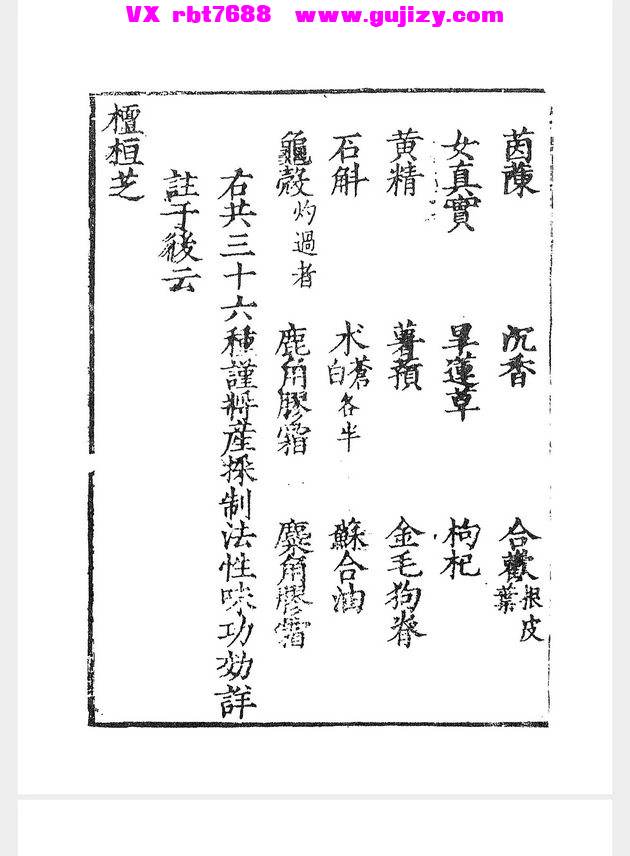 VX rbt7688 www.gujizy.com
茵蔯 沉香 合歡根皮葉
女真實 旱蓮草 枸杞
黄精 薯蕷 金毛狗脊
石斛 朮蒼白各半 蘇合油
龜殼灼過者 鹿角膠霜 麋角膠霜
右共三十六種謹將産採制法性味功効詳
註于後云
櫃桓芝